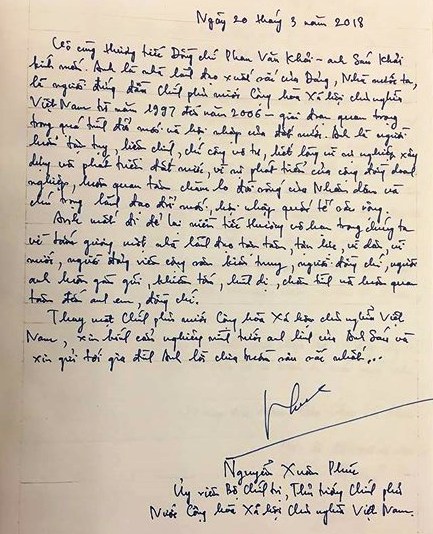 Ngày 20 tháng 3 năm 2018
Vô cùng thương tiếc Đồng chí Phan Văn Khải – anh Sáu Khải
kính mến. Anh là nhà lãnh đạo xuất sắc của Đảng, Nhà nước ta,
là người đứng đầu Chính phủ nước Cộng hòa Xã hội chủ nghĩa
Việt Nam từ năm 1997 đến năm 2006 – giai đoạn quan trọng
trong quá trình đổi mới và hội nhập của đất nước. Anh là người
luôn tận tụy, liêm chính, chí công vô tư, hết lòng vì sự nghiệp xây
dựng và phát triển đất nước, vì sự phát triển của cộng đồng doanh
nghiệp, luôn quan tâm chăm lo đời sống của Nhân dân và
chú trọng lãnh đạo đổi mới, hội nhập quốc tế sâu rộng.
Anh mất đi để lại niềm tiếc thương vô hạn trong chúng ta
về tấm gương một nhà lãnh đạo tận tâm, tận lực, vì dân, vì
nước, người đảng viên cộng sản kiên trung, người đồng chí, người
anh luôn gần gũi, khiêm tốn, bình dị, chân tình và luôn quan
tâm đến anh em, đồng chí.
Thay mặt Chính phủ nước Cộng hòa Xã hội chủ nghĩa Việt
Nam, xin kính cẩn nghiêng mình trước anh linh của Anh Sáu và
xin gửi tới gia đình Anh lời chia buồn sâu sắc nhất...
Nguyễn Xuân Phúc
Ủy viên Bộ Chính trị, Thủ tướng Chính phủ
Nước Cộng hòa Xã hội Chủ nghĩa Việt Nam.